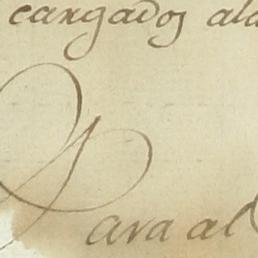 cargados ala
Para al